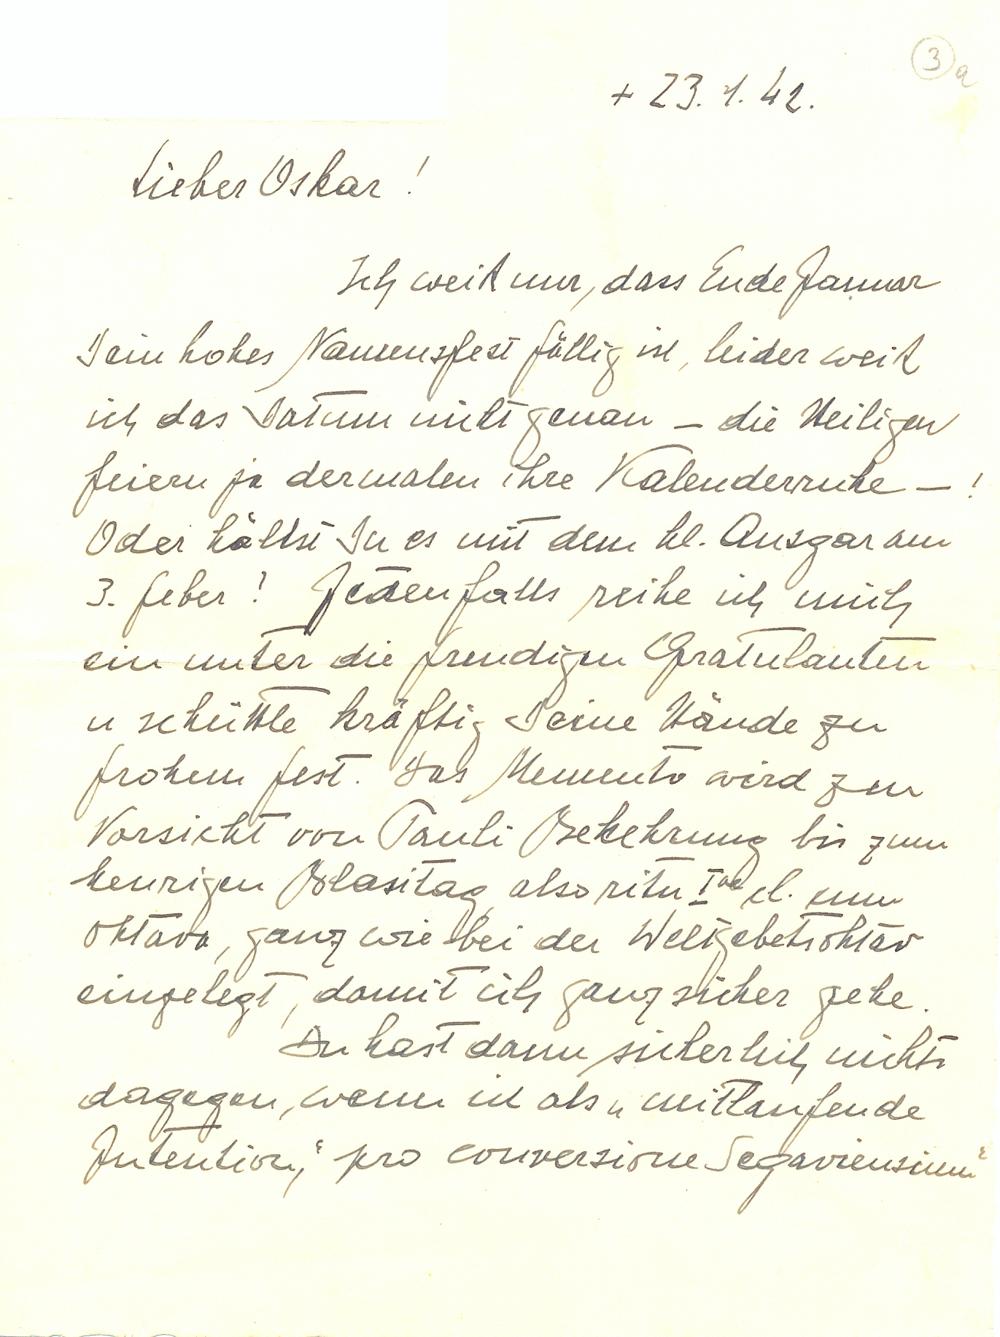 3a
+ 23. 1. 42.
Lieber Oskar!
Ich weiß nur, dass Ende Januar
Dein hohes Namensfest fällig ist, leider weiß
ich das Datum nicht genau – die Heiligen
feiern ja dermalen ihre Kalenderruhe –!
Oder hältst Du es mit dem hl. Ansgar am
3. Feber! Jedenfalls reihe ich mich
ein unter die freudigen Gratulanten
u schüttle kräftig Deine Hände zu
frohem Fest. Das Memento wird zur
Vorsicht von Pauli Bekehrung bis zum
heurigen Blasitag, also ritu I ae cl. cum
oktava, ganz wie bei der Weltgebetsoktav
eingelegt, damit ich ganz sicher gehe.
Du hast dann sicherlich nichts
dagegen, wenn ich als „mitlaufende
Intention," pro conversione Segaviensium"